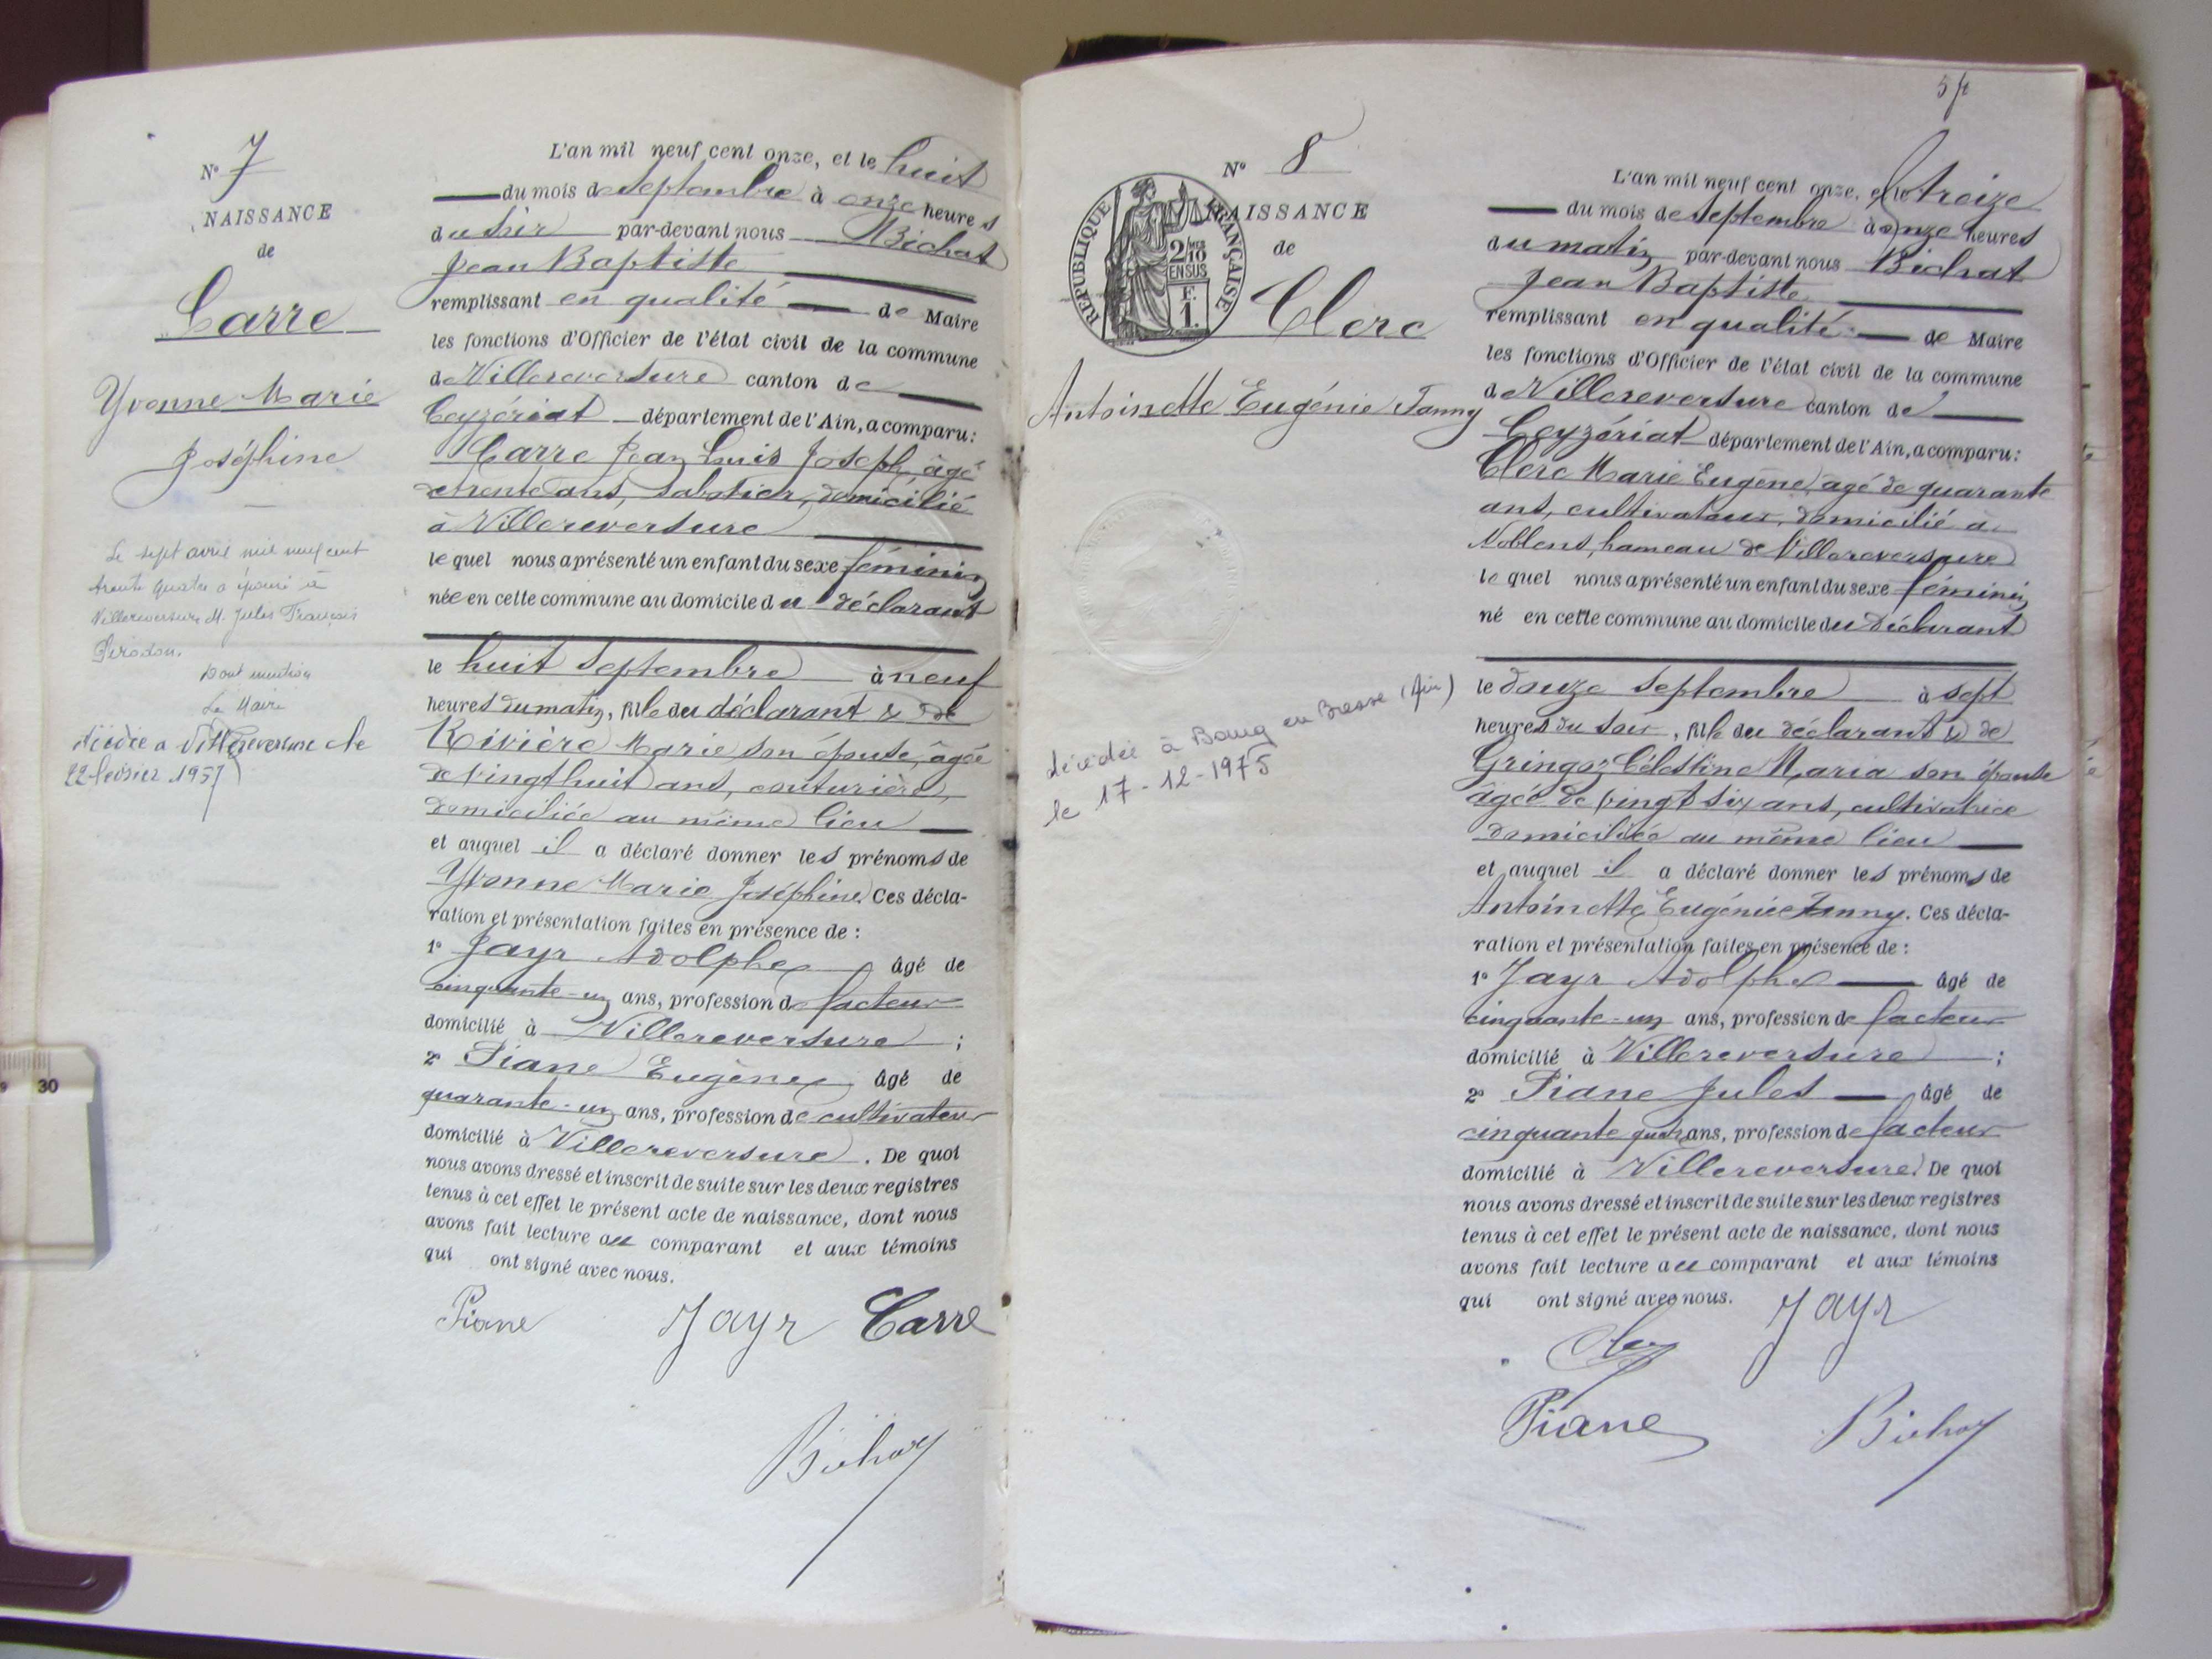 Nº 7
NAISSANCE
de
Carre
Yvonne Marie
Joséphine
Le sept avril mil neuf cent
trente quatre a épousé à
Villereversure M. Jules François
Pirodon.
Dont mention
Le Maire
décédée à Villereversure le
22 février 1957
L'an mil neuf cent onze, et le huit
du mois de septembre à onze heures
du soir par-devant nous Bichat
Jean Baptiste
remplissant en qualité de Maire
les fonctions d'Officier de l'état civil de la commune
de Villereversure canton de
Ceyzériat département de l'Ain, a comparu:
Carre Jean Louis Joseph, âgé
de trente ans, sabotier, domicilié
à Villereversure
lequel nous a présenté un enfant du sexe féminin
née en cette commune au domicile du déclarant
le huit septembre à neuf
heures du matin, fille du déclarant & de
Rivière Marie son épouse, âgée
de vingt huit ans, couturière,
domiciliée au même lieu
et auquel il a déclaré donner les prénoms de
Yvonne Marie Joséphine. Ces décla-
ration et présentation faites en présence de :
1º Jayr Adolphe âgé de
cinquante-un ans, profession de facteur
domicilié à Villereversure ;
2º Piane Eugène âgé de
quarante-un ans, profession de cultivateur
domicilié à Villereversure. De quoi
nous avons dressé et inscrit de suite sur les deux registres
tenus à cet effet le présent acte de naissance, dont nous
avons fait lecture au comparant et aux témoins
qui ont signé avec nous.
Piane Jayr Carre
Bichat
5
Nº 8
RÉPUBLIQUE FRANÇAISE
2/10 MES
EN SUS
F.
1.
NAISSANCE
de
Clerc
Antoinette Eugénie Fanny
décédée à Bourg en Bresse (Ain)
le 17-12-1975
L'an mil neuf cent onze, et le treize
du mois de septembre à onze heures
du matin par-devant nous Bichat
Jean Baptiste
remplissant en qualité de Maire
les fonctions d'Officier de l'état civil de la commune
de Villereversure canton de
Ceyzériat département de l'Ain, a comparu:
Clerc Marie Eugène, âgé de quarante
ans, cultivateur, domicilié à
Noblens, hameau de Villereversure
lequel nous a présenté un enfant du sexe féminin
né en cette commune au domicile du Déclarant
le douze septembre à sept
heures du soir, fille du déclarant & de
Gringoz Célestine Maria son épouse
âgée de vingt six ans, cultivatrice
domiciliée au même lieu
et auquel il a déclaré donner les prénoms de
Antoinette Eugénie Fanny. Ces décla-
ration et présentation faites en présence de :
1º Jayr Adolphe âgé de
cinquante-un ans, profession de facteur
domicilié à Villereversure ;
2º Piane Jules âgé de
cinquante quatre ans, profession de facteur
domicilié à Villereversure. De quoi
nous avons dressé et inscrit de suite sur les deux registres
tenus à cet effet le présent acte de naissance, dont nous
avons fait lecture au comparant et aux témoins
qui ont signé avec nous. Jayr
Clerc
Piane Bichat
30